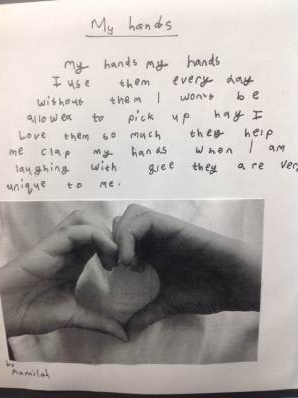 My hands
My hands my hands
I use them every day
without them I won't be
allowed to pick up hay I
Love them so much they help
me clap my hands when I am
laughing with glee they are very
unique to me.
by
Mamilah